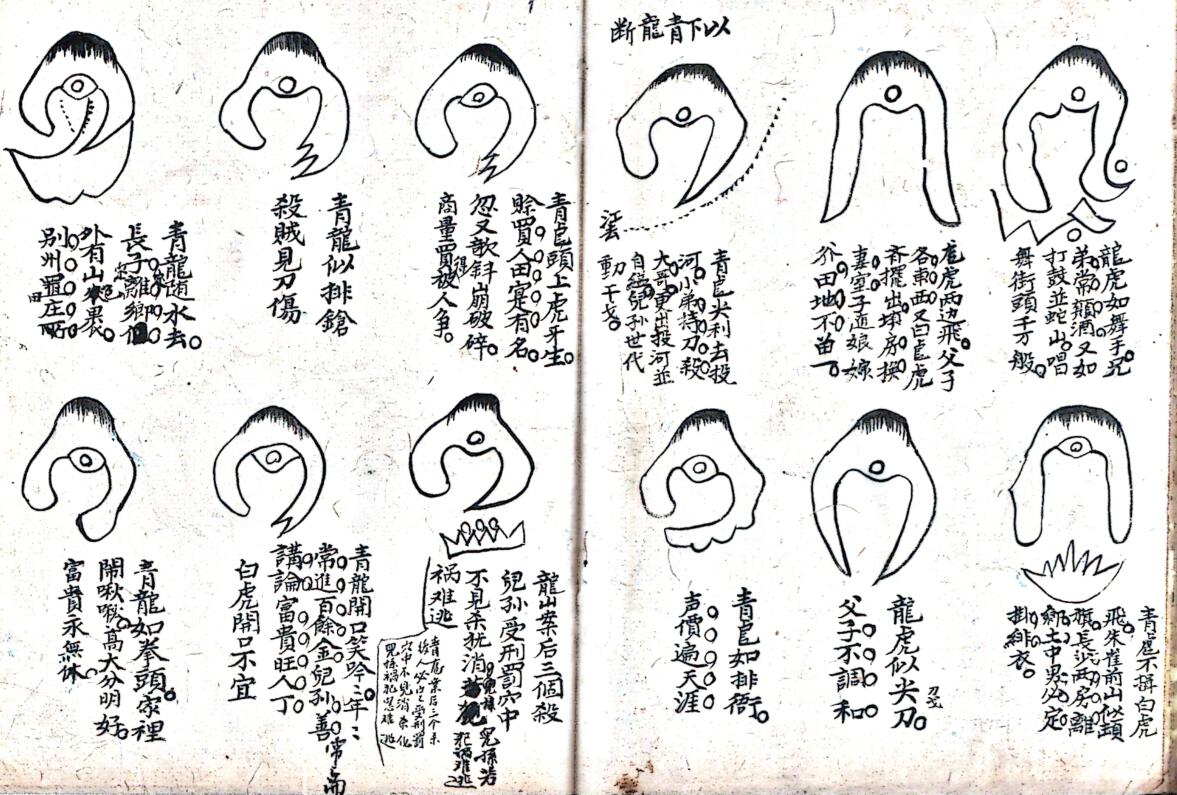 断龍青下以
龍虎如舞手兄
弟常顛酒又如
打鼓並蛇山唱
舞街頭千万般
龍虎两边飛父子
各東西又曰龍虎
齐擺出填房換
妻室子逆娘嫁
田地不留一
青龍尖利去投
河小弟持刀殺
大哥更出投河並
自縊兒孫世代
動干戈
青龍不揖白虎
飛朱雀前山似頭
旗長少两房離
鄉土中男必定
掛緋衣
龍虎似尖刀
父子不調和
青龍如排衙
声價遍天涯
青龍頭上虎牙生
賒買人田寔有名
忽又歌斜崩破碎
商量買得被人争
青龍似排鎗
殺賊見刀傷
青龍隨水去
長子定離鄉
外有山裹
别州置庄田
龍山案后三個殺
兒孫受刑罰穴中
不見杀犹消
兒孫若
犯祸难逃
祸难逃
青龍案后三个杀
人必自受刑罰
穴中不見消杀化
兒孫祸犯是难逃
青龍開口笑吟吟年年
常進百餘金兒孫善
講論富貴旺人丁
白虎開口不宜
青龍如拳頭家裡
鬧啾啾高大分明好
富貴永無休